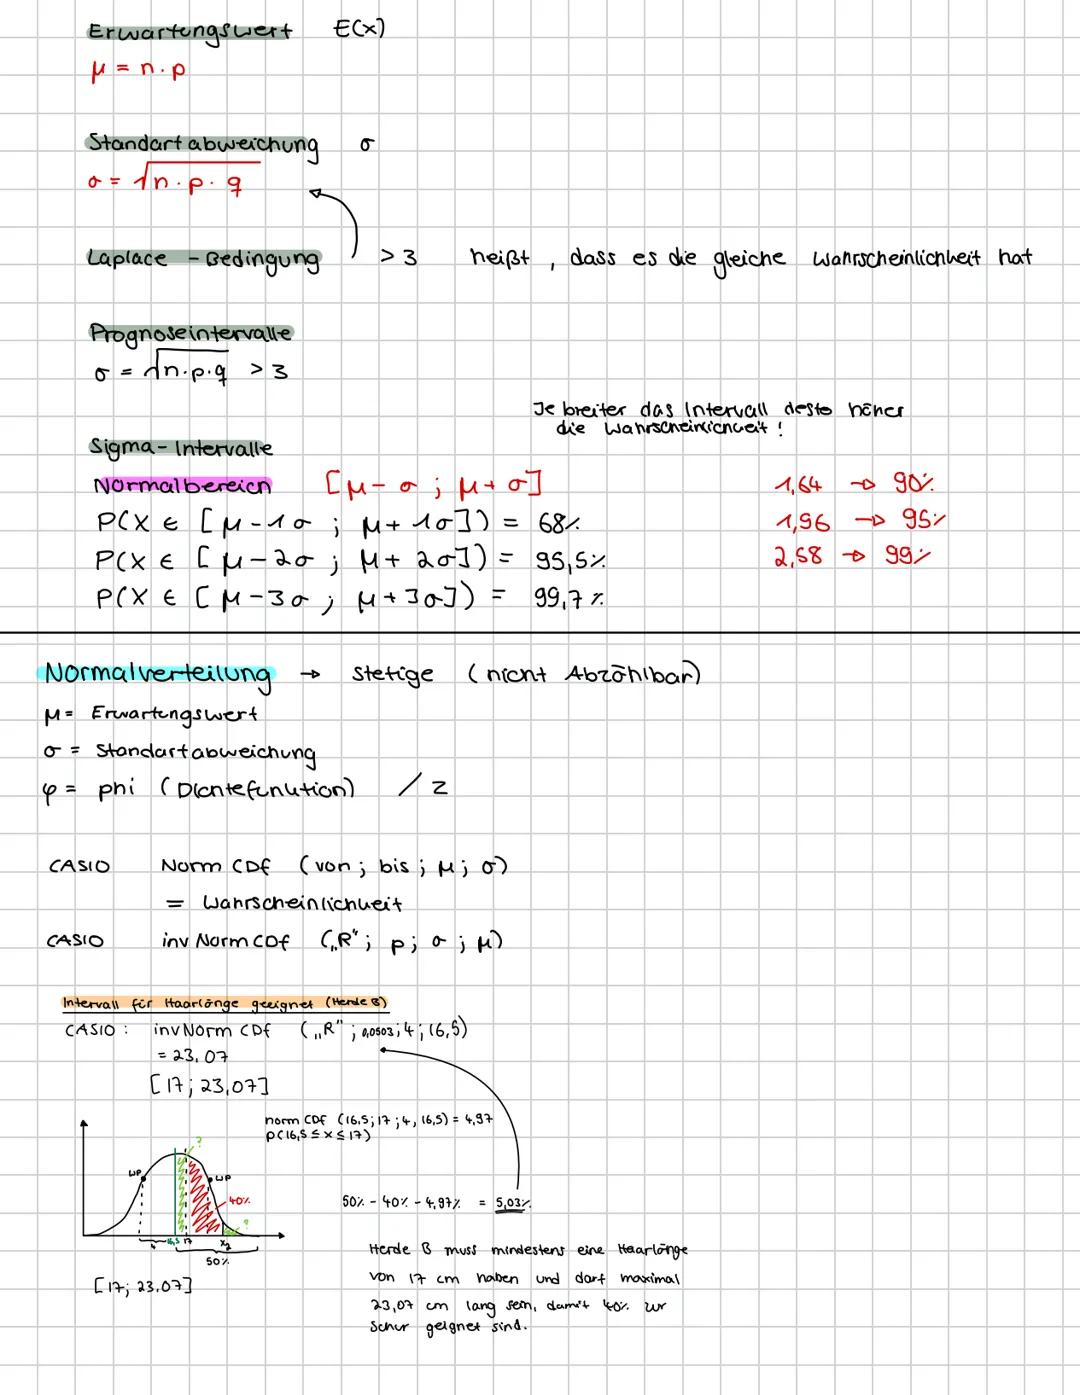 Erwartungswert E(x)
μ = n·p
Standartabweichung σ
σ = √n·p·q
Laplace - Bedingung > 3 heißt, dass es die gleiche Wahrscheinlichkeit hat
Prognoseintervalle
σ = √n·p·q > 3
Je breiter das Intervall desto höher
die Wahrscheinlichkeit!
Sigma-Intervalle
Normalbereich [μ-σ ; μ+σ] 1,64 → 90%
P(X ∈ [μ-1σ ; μ+1σ]) = 68% 1,96 → 95%
P(X ∈ [μ-2σ ; μ+2σ]) = 95,5% 2,58 → 99%
P(X ∈ [μ-3σ ; μ+3σ]) = 99,7%
Normalverteilung → stetige (nicht Abzählbar)
μ = Erwartungswert
σ = Standartabweichung
φ = phi (Dichtefunktion) / z
CASIO Norm CDf (von ; bis ; μ ; σ)
= Wahrscheinlichkeit
CASIO inv Norm CDf („R“ ; p ; σ ; μ)
Intervall für Haarlänge geeignet (Herde B)
CASIO : inv Norm CDf („R“ ; 0,0503 ; 4 ; 16,5)
= 23,07
[17 ; 23,07]
norm CDf (16,5 ; 17 ; 4, 16,5) = 4,97
P(16,5 ≤ x ≤ 17)
?
WP WP
40%
?
4 16,5 17 x₂
50%
50% - 40% - 4,97% = 5,03%
[17; 23,07]
Herde B muss mindestens eine Haarlänge
von 17 cm haben und darf maximal
23,07 cm lang sein, damit 40% zur
Schur geignet sind.